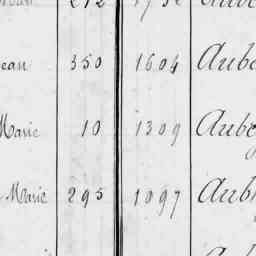 ean 350 1604 Aub
Marie 10 1309 Aub
Marie 295 1097 Aub